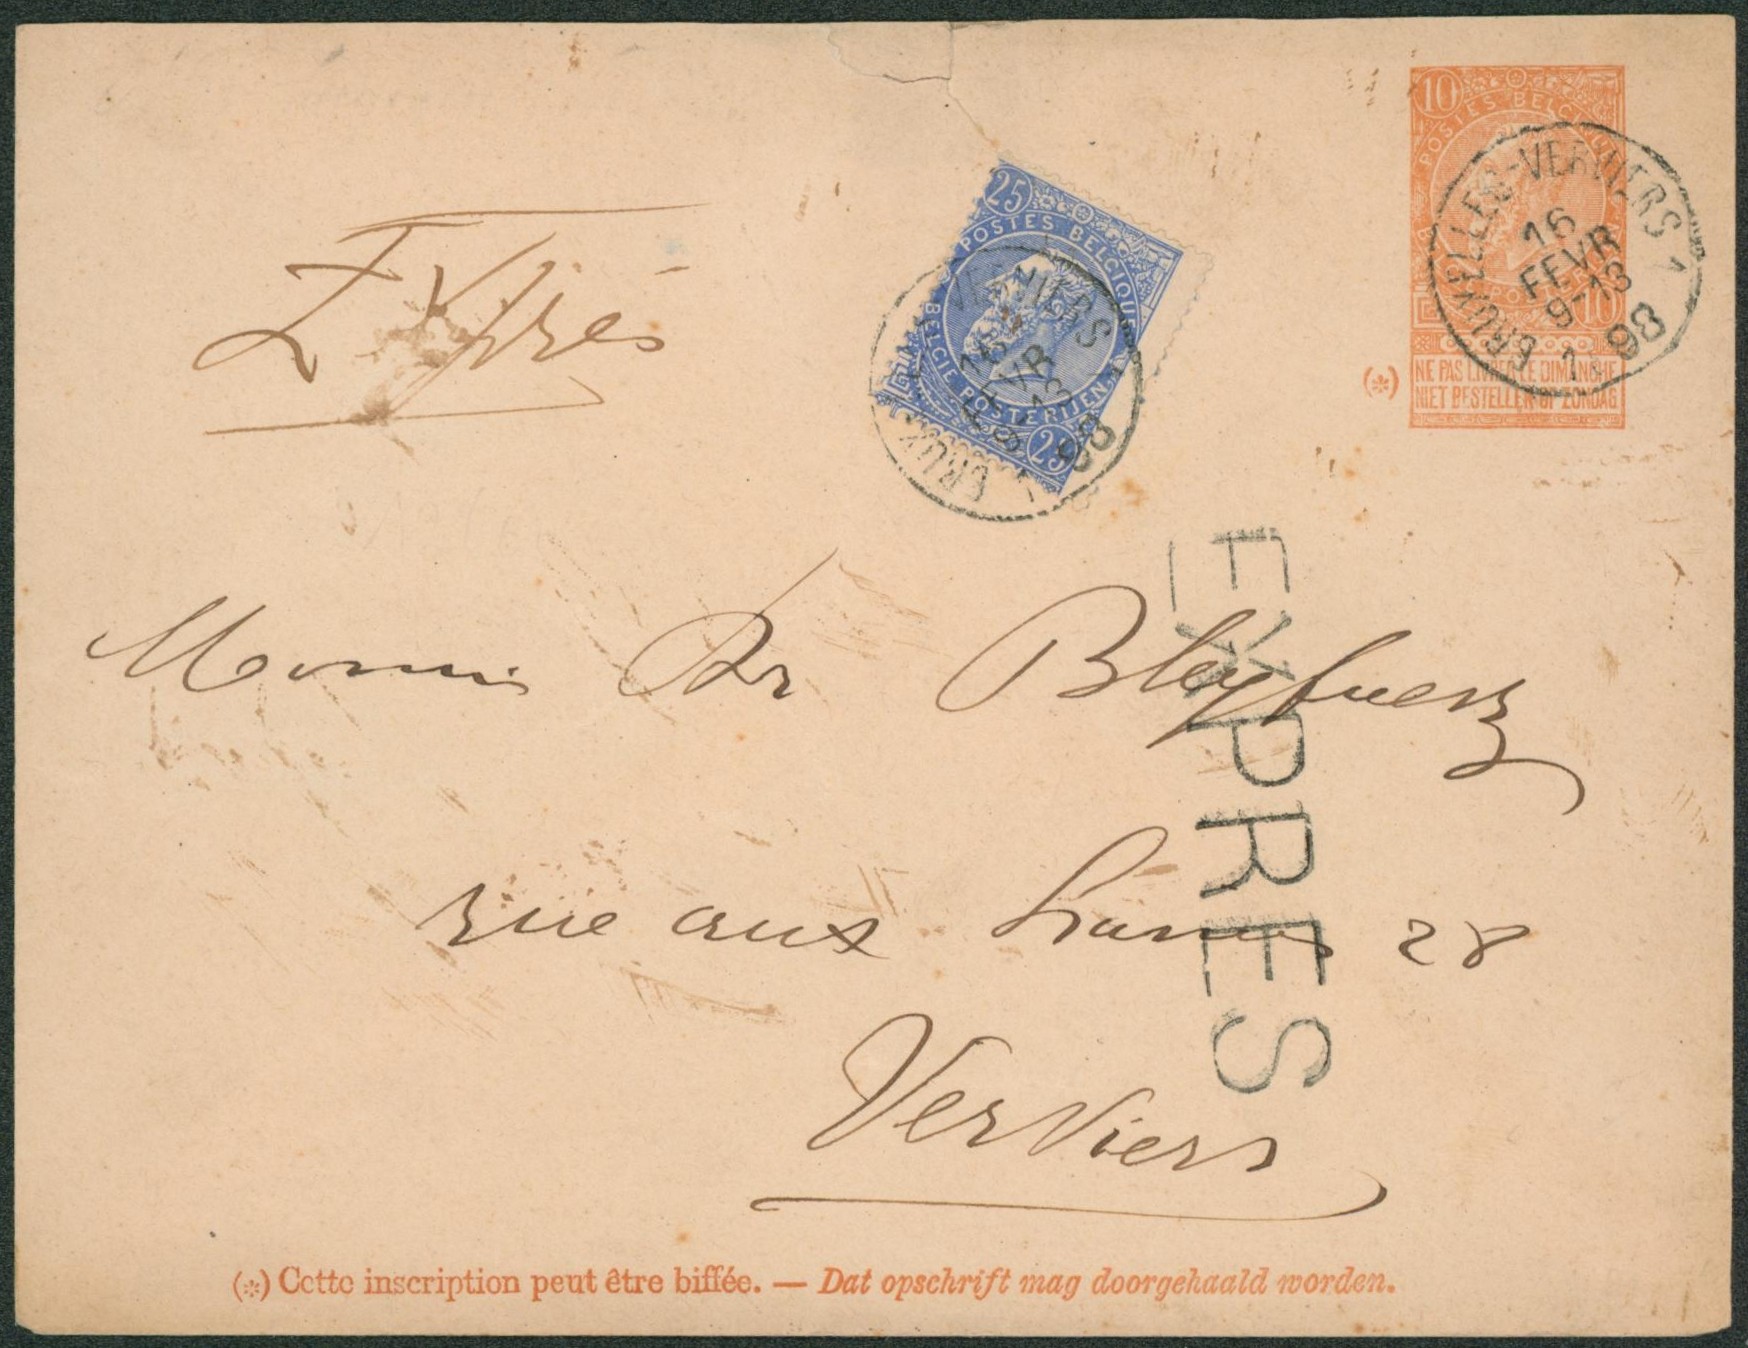 10
POSTES BELGIQUE
BELGIE POSTERIJEN
10
(*) NE PAS LIVRER LE DIMANCHE
NIET BESTELLEN OP ZONDAG
BRUXELLES-VERVIERS 1
16
FEVR
9-13
98
Exprès
25
POSTES BELGIQUE
BELGIE POSTERIJEN
25
VERVIERS
16
FEVR
98
EXPRES
Dr
rue aux 28
Verviers
(*) Cette inscription peut être biffée. — Dat opschrift mag doorgehaald worden.